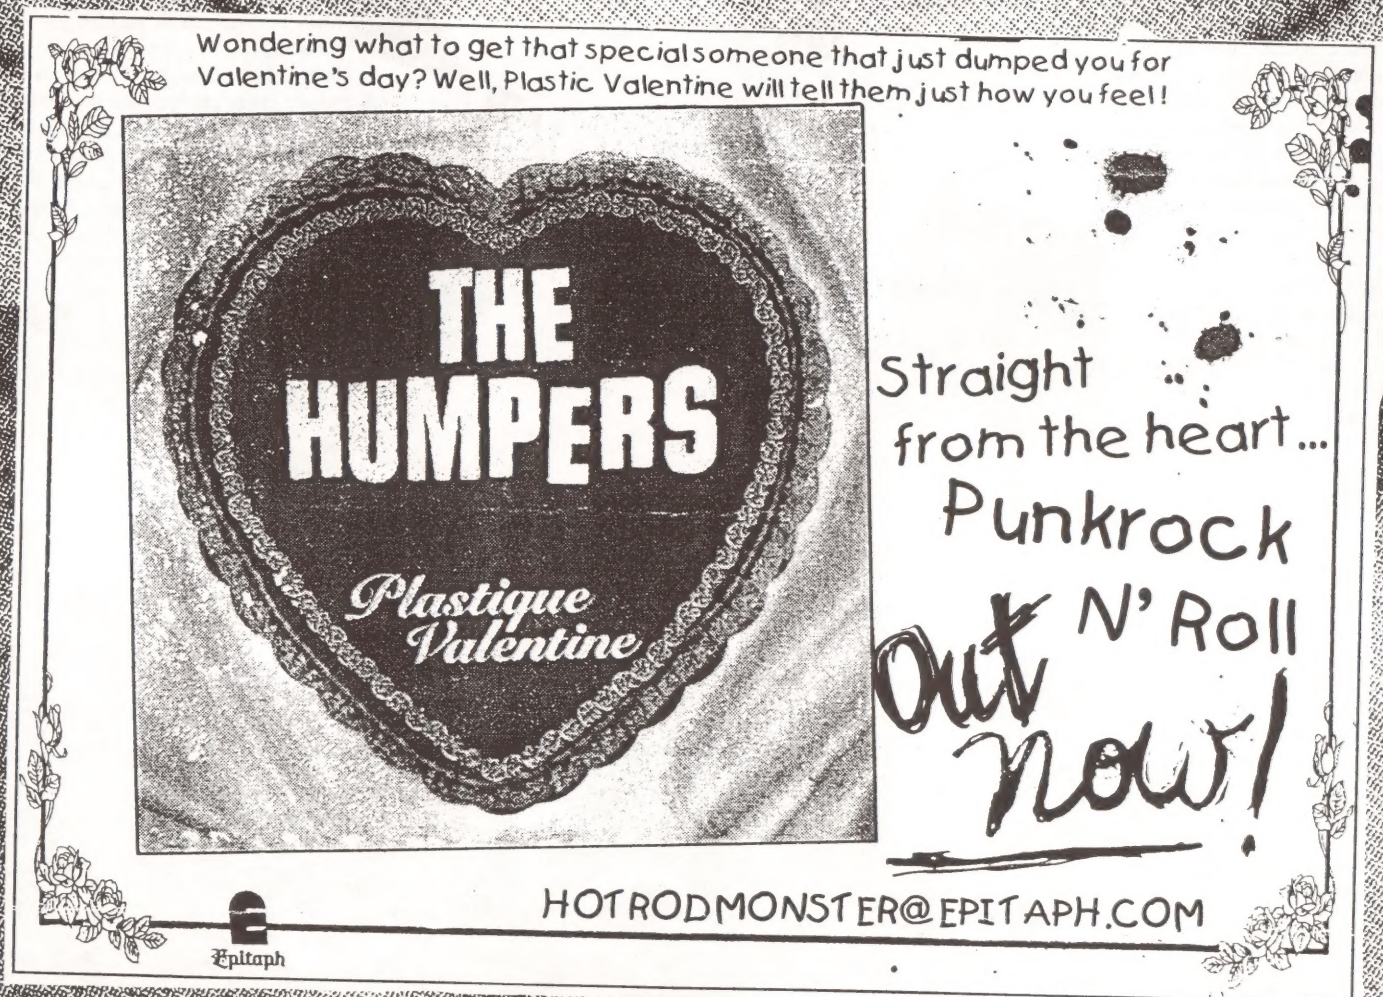 Wondering what to get that special someone that just dumped you for
Valentine's day? Well, Plastic Valentine will tell them just how you feel!
THE
HUMPERS
Plastique
Valentine
Straight
from the heart...
Punkrock
N' Roll
Out
now!
HOTRODMONSTER@EPITAPH.COM
Epitaph